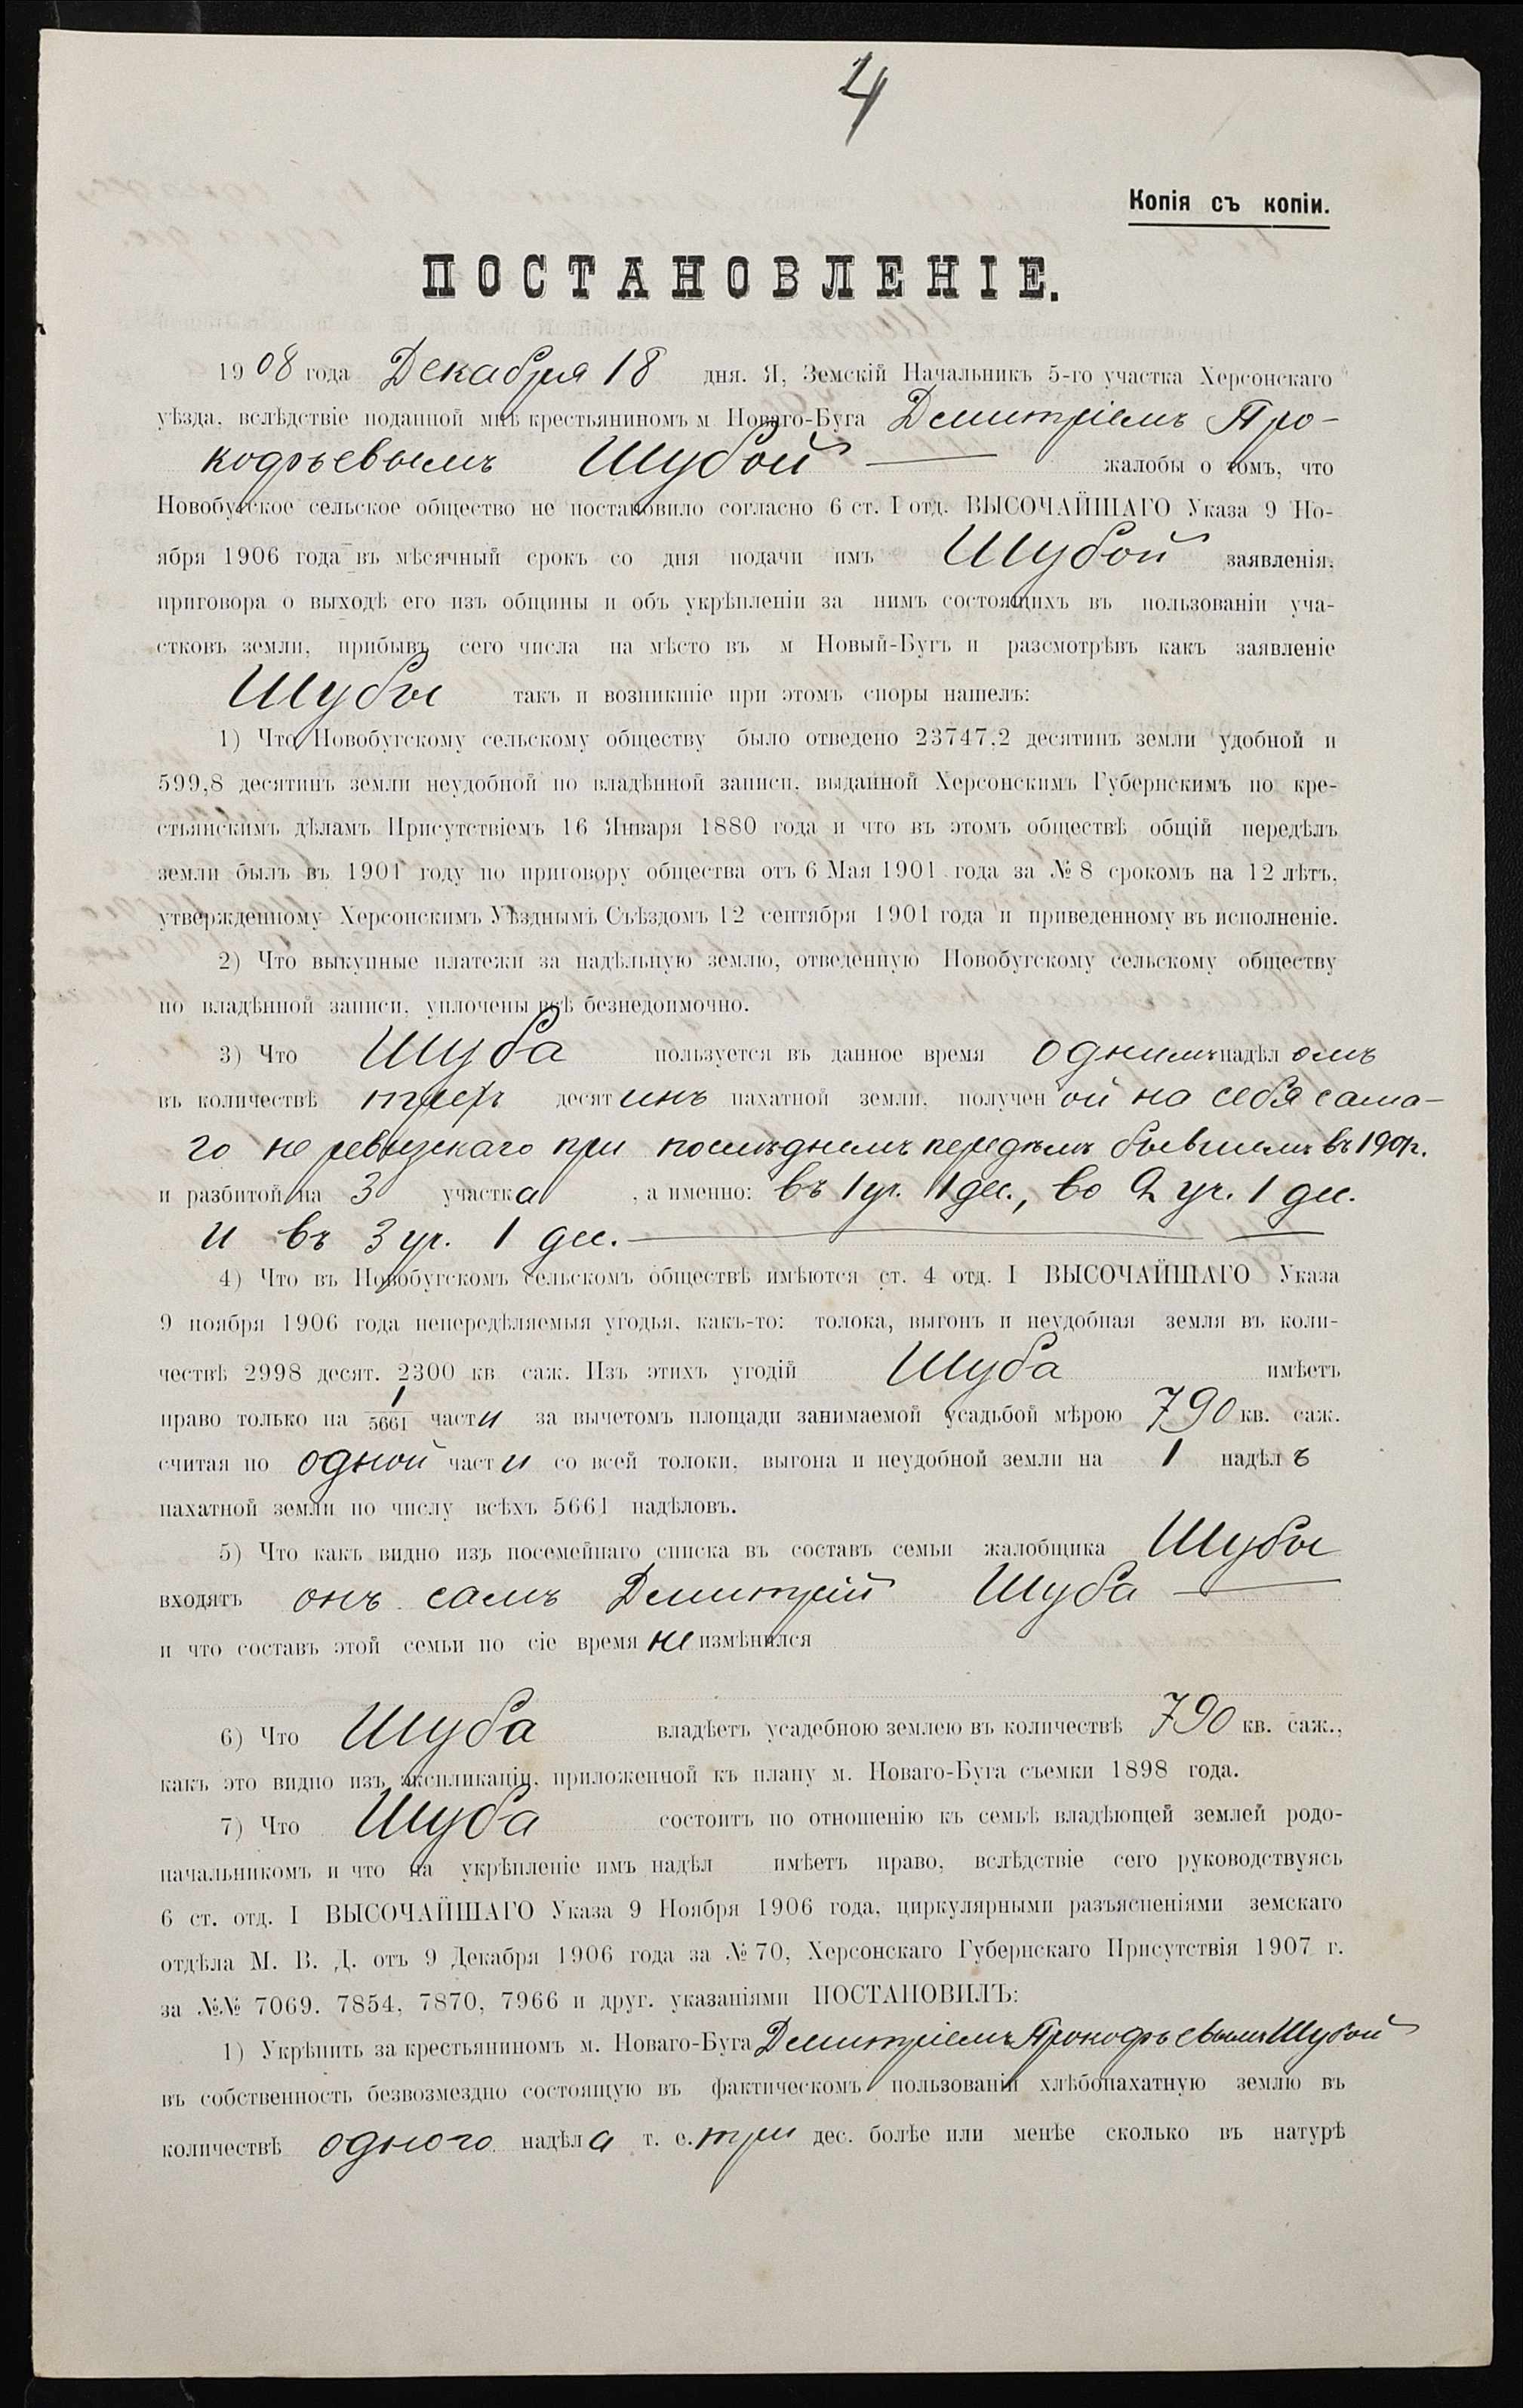 4
Копія съ копіи.
ПОСТАНОВЛЕНІЕ.
1908 года Декабря 18 дня. Я, Земскій Начальникъ 5-го участка Херсонскаго
уѣзда, вслѣдствіе поданной мнѣ крестьяниномъ м Новаго-Буга Демитріемъ Про-
кофьевымъ Шубой жалобы о томъ, что
Новобугское сельское общество не постановило согласно 6 ст. I отд. ВЫСОЧАЙШАГО Указа 9 Но-
ября 1906 года въ мѣсячный срокъ со дня подачи имъ Шубой заявленія,
приговора о выходѣ его изъ общины и объ укрѣпленіи за нимъ состоящихъ въ пользованіи уча-
стковъ земли, прибывъ сего числа на мѣсто въ м Новый-Бугъ и разсмотрѣвъ какъ заявленіе
Шубы такъ и возникшіе при этомъ споры нашелъ:
1) Что Новобугскому сельскому обществу было отведено 23747,2 десятинъ земли удобной и
599,8 десятинъ земли неудобной по владѣнной записи, выданной Херсонскимъ Губернскимъ по кре-
стьянскимъ дѣламъ Присутствіемъ 16 Января 1880 года и что въ этомъ обществѣ общій передѣлъ
земли былъ въ 1901 году по приговору общества отъ 6 Мая 1901 года за № 8 срокомъ на 12 лѣтъ,
утвержденному Херсонскимъ Уѣзднымъ Съѣздомъ 12 сентября 1901 года и приведенному въ исполненіе.
2) Что выкупные платежи за надѣльную землю, отведенную Новобугскому сельскому обществу
по владѣнной записи, уплочены всѣ безнедоимочно.
3) Что Шуба пользуется въ данное время однимъ надѣломъ
въ количествѣ трехъ десятинъ пахатной земли, полученой на себя сама-
го не ревизскаго при послѣднемъ передѣлѣ бывшемъ въ 1901г.
и разбитой на 3 участка, а именно: въ 1 уч. 1 дес., во 2 уч. 1 дес.
и въ 3 уч. 1 дес.
4) Что въ Новобугскомъ сельскомъ обществѣ имѣются ст. 4 отд. I ВЫСОЧАЙШАГО Указа
9 ноября 1906 года непередѣляемыя угодья, какъ-то: толока, выгонъ и неудобная земля въ коли-
чествѣ 2998 десят. 2300 кв саж. Изъ этихъ угодій Шуба имѣетъ
право только на 1/5661 части за вычетомъ площади занимаемой усадьбой мѣрою 790 кв. саж.
считая по одной части со всей толоки, выгона и неудобной земли на 1 надѣлъ
пахатной земли по числу всѣхъ 5661 надѣловъ.
5) Что какъ видно изъ посемейнаго списка въ составъ семьи жалобщика Шубы
входятъ онъ самъ Демитрій Шуба
и что составъ этой семьи по сіе время не измѣнился
6) Что Шуба владѣетъ усадебною землею въ количествѣ 790 кв. саж.,
какъ это видно изъ экспликаціи, приложенной къ плану м. Новаго-Буга съемки 1898 года.
7) Что Шуба состоитъ по отношенію къ семьѣ владѣющей землей родо-
начальникомъ и что на укрѣпленіе имъ надѣл имѣетъ право, вслѣдствіе сего руководствуясь
6 ст. отд. I ВЫСОЧАЙШАГО Указа 9 Ноября 1906 года, циркулярными разъясненіями земскаго
отдѣла М. В. Д. отъ 9 Декабря 1906 года за № 70, Херсонскаго Губернскаго Присутствія 1907 г.
за №№ 7069. 7854, 7870, 7966 и друг. указаніями ПОСТАНОВИЛЪ:
1) Укрѣпить за крестьяниномъ м. Новаго-Буга Демитріемъ Прокофьевымъ Шубой
въ собственность безвозмездно состоящую въ фактическомъ пользованіи хлѣбопахатную землю въ
количествѣ одного надѣла т. е. три дес. болѣе или менѣе сколько въ натурѣ